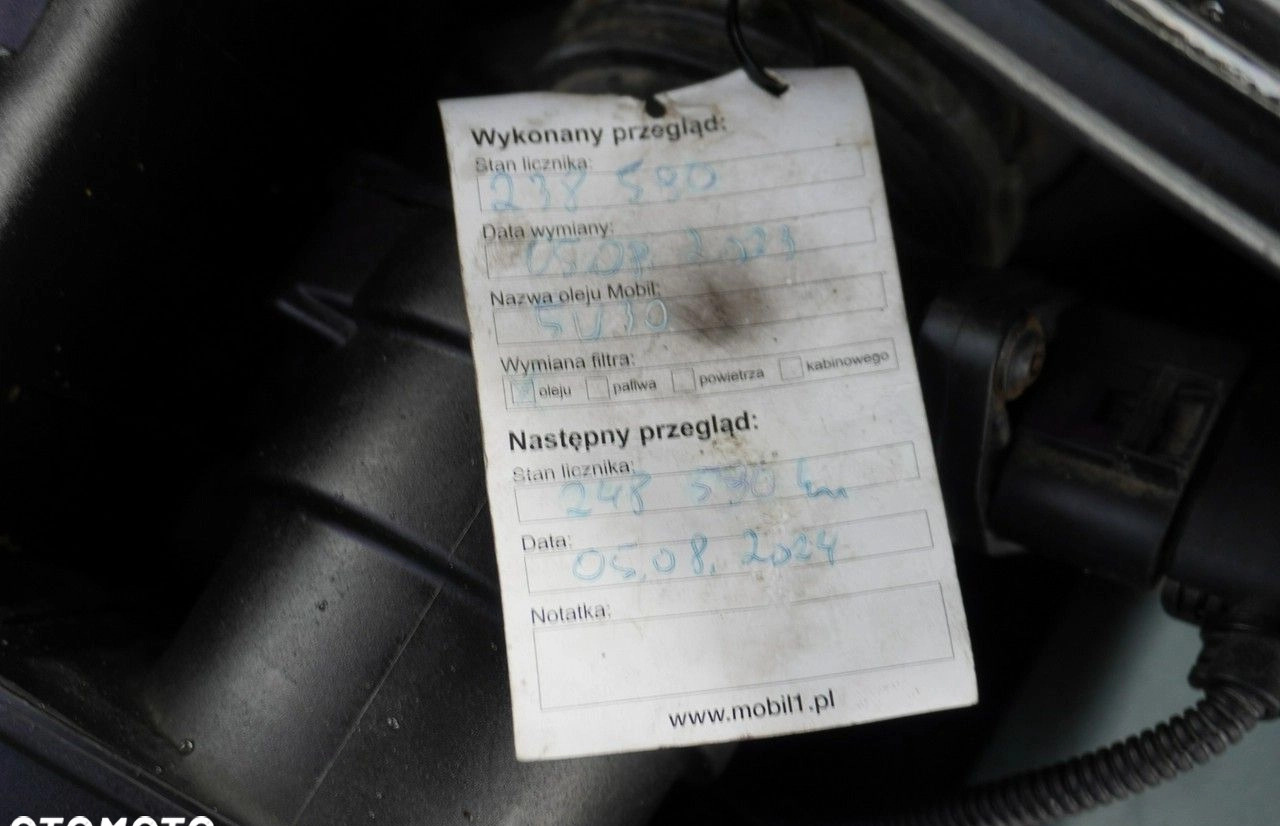 Wykonany przegląd:
Stan licznika:
238 590
Data wymiany:
05.08 2023
Nazwa oleju Mobil:
5W30
Wymiana filtra:
oleju paliwa powietrza kabinowego
Następny przegląd:
Stan licznika:
248 590 km
Data:
05.08.2024
Notatka:
www.mobil1.pl
OTOMOTO